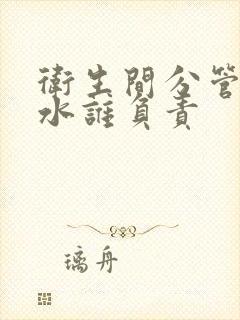 衛生間公管
水誰負責
璃舟